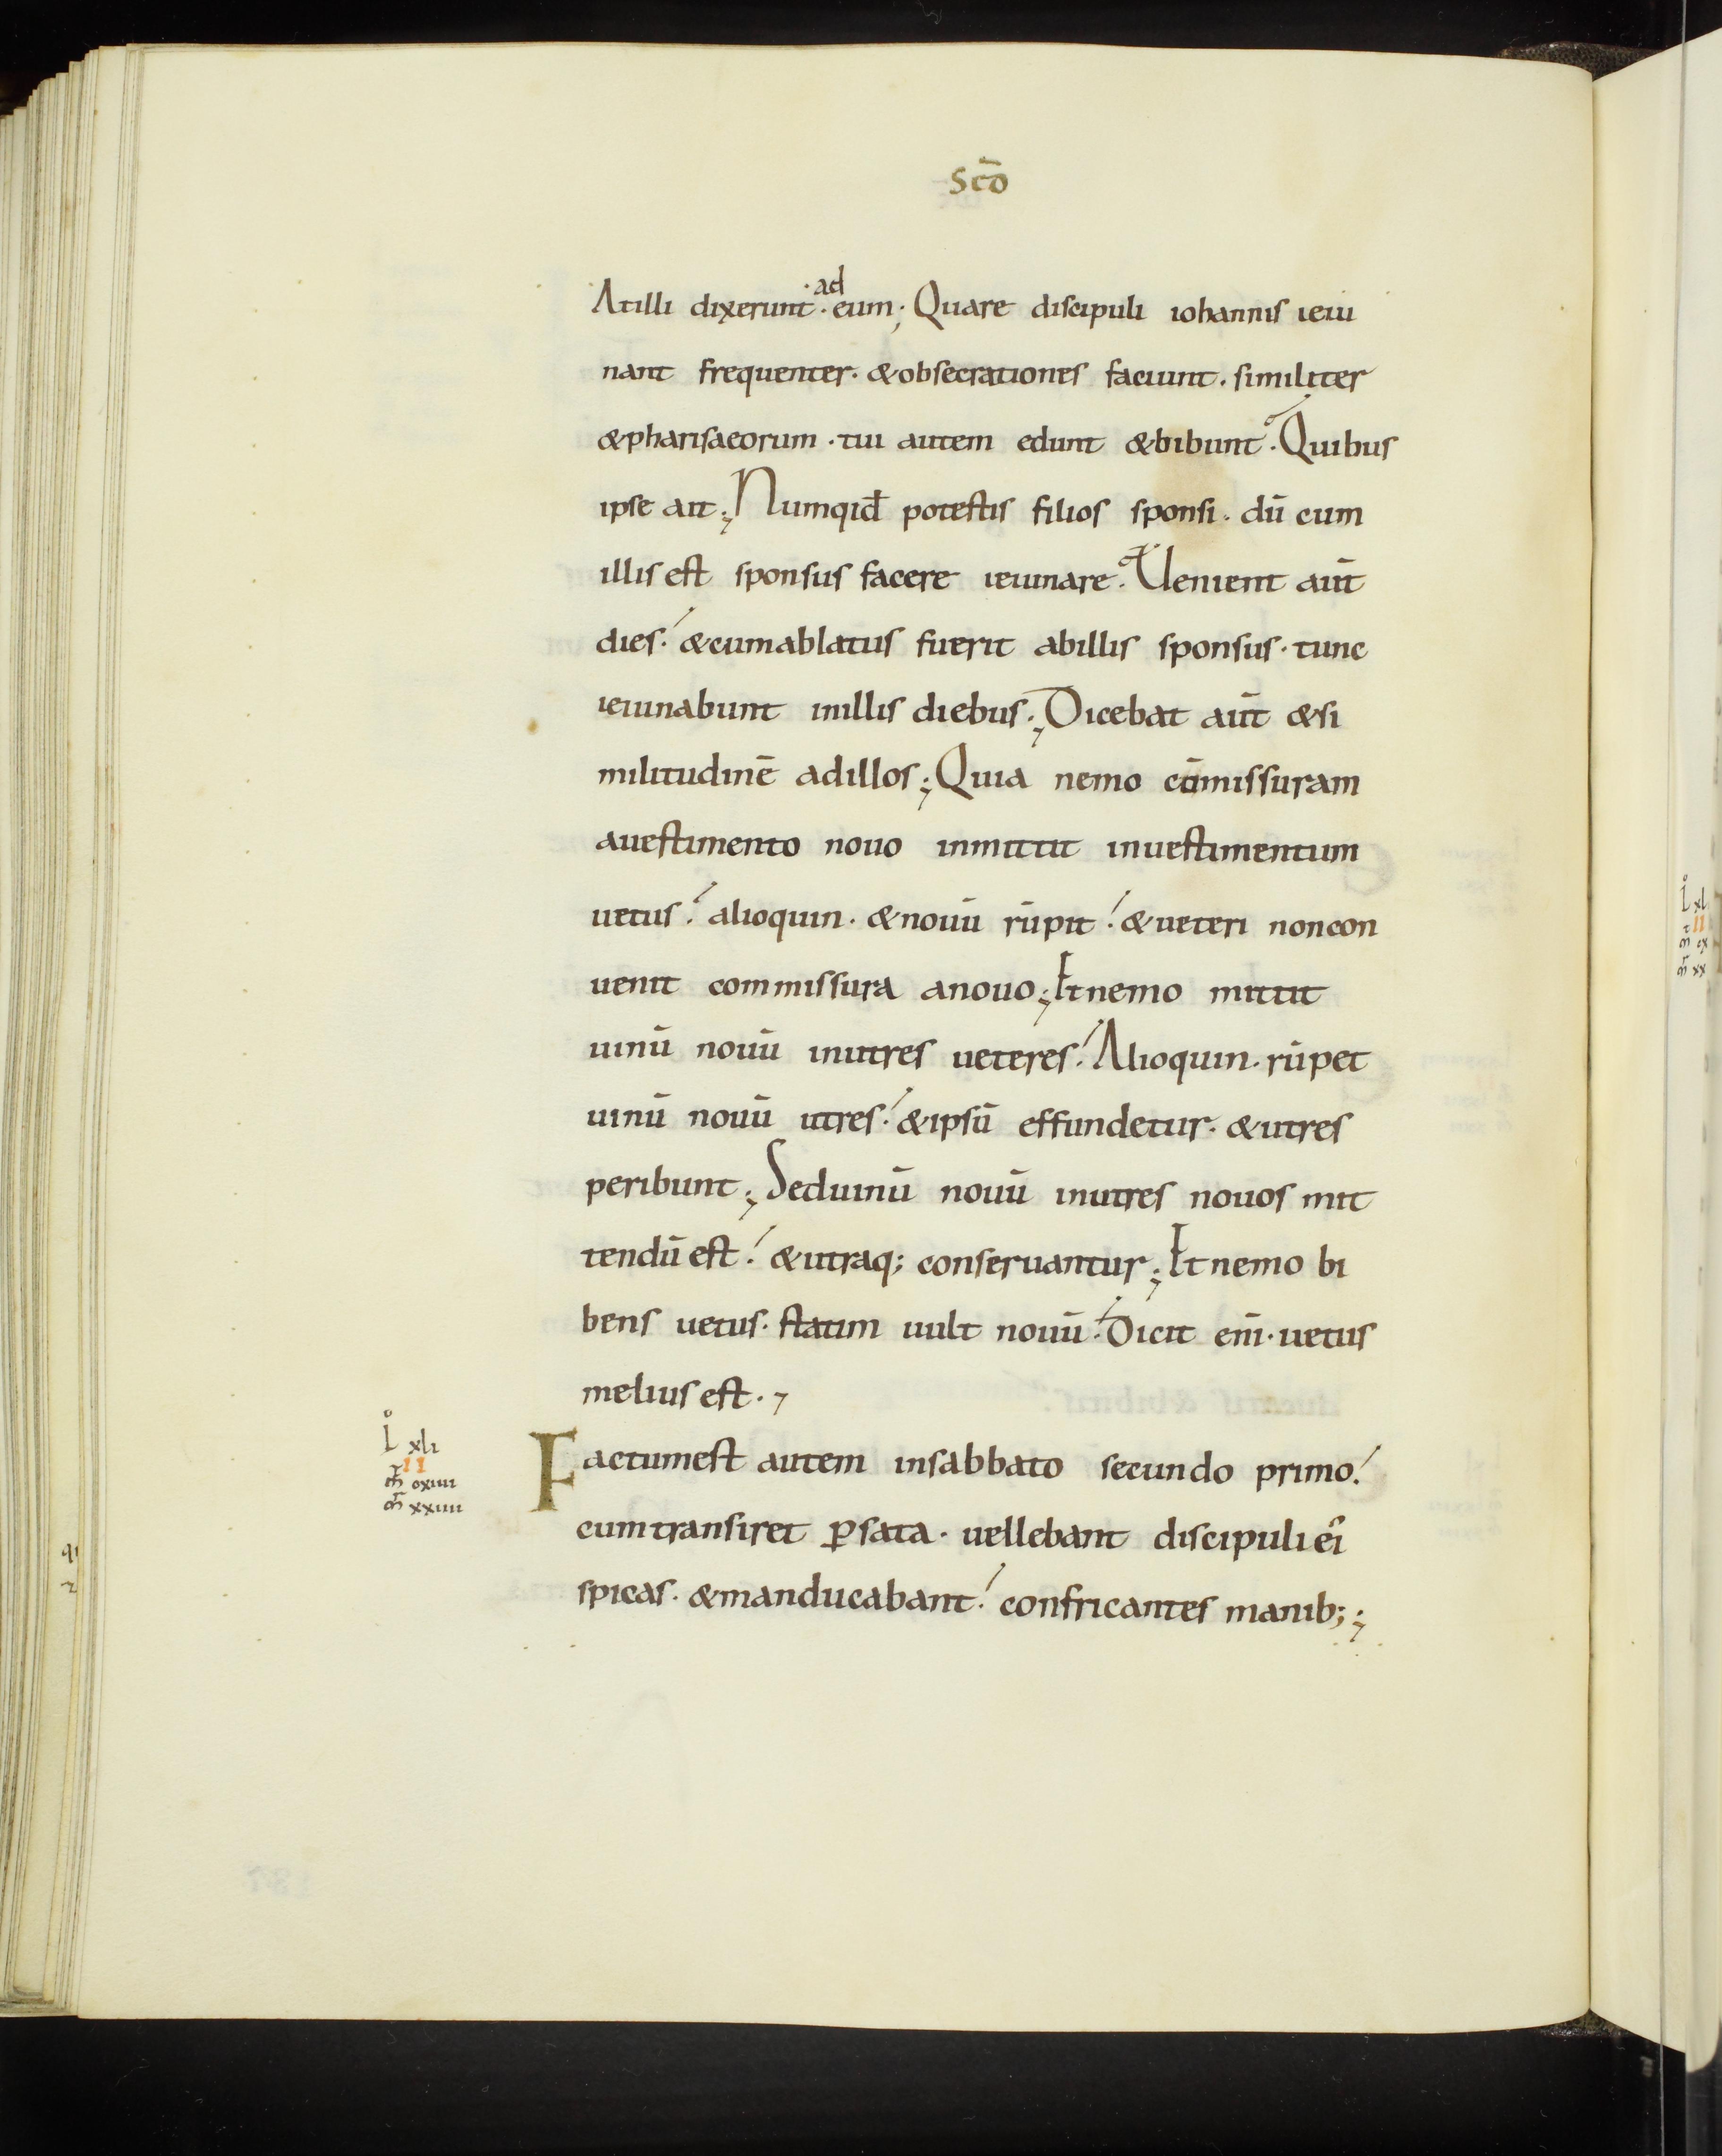 Scō
Atilli dixerunt · ad eum; Quare discipuli iohannis ieiu
nant frequenter · &obsecrationes faciunt · similiter
&pharisaeorum · tui autem edunt &bibunt? Quibus
ipse ait; Numqid̄ potestis filios sponsi · dū cum
illis est sponsus facere ieiunare? Uenient aūt
dies · &cumablatus fuerit abillis sponsus · tunc
ieiunabunt inillis diebus; Dicebat aūt &si
militudinē adillos; Quia nemo cōmissuram
auestimento nouo inmittit inuestimentum
uetus · alioquin · &nouū rūpit · &ueteri noncon
uenit commissura anouo; Etnemo mittit
uinū nouū inutres ueteres · Alioquin · rūpet
uinū nouū utres · &ipsū effundetur · &utres
peribunt; Seduinū nouū inutres nouos mit
tendū est · &utraq; conseruantur; Et nemo bi
bens uetus · statim uult nouū · Dicit eni̅ · uetus
melius est ·
L xli
II
m̄ cxiiii
m̄r xxiiii
Factumest autem insabbato secundo primo ·
cumtransiret ꝑsata · uellebant discipuli ei̅
spicas · &manducabant · confricantes manib; ;